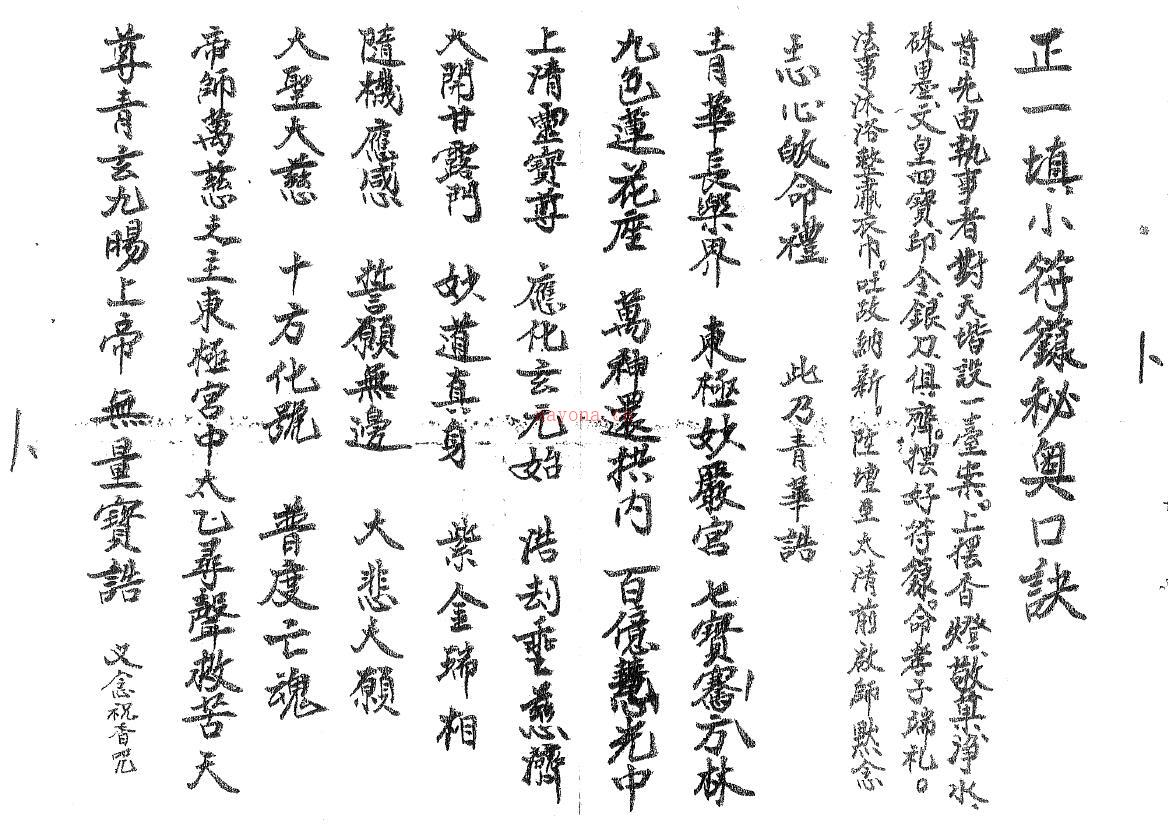 正一填小符籙秘奥口訣
首先由執事者對天堦設一臺案。上擺香燈、敬菓、净水、
硃墨、文皇四寶、印全、銀刀俱齊。擺好符籙。命孝子端礼。
法事沐浴整肅衣巾。吐故納新。陞壇至太清前啟師默念
志心皈命禮 此乃青華誥
青華長樂界 東極妙嚴宮 七寶騫方林
九色蓮花座 萬神還拱内 百億慧光中
上清靈寶尊 應化玄元始 浩刦垂慈濟
大開甘露門 妙道真身 紫金瑞相
隨機應感 誓願無邊 大悲大願
大聖大慈 十方化號 普度亡魂
帝師萬慈之主東極宮中太乙尋聲救苦天
尊青玄九暘上帝 無量寶誥 又念祝香咒